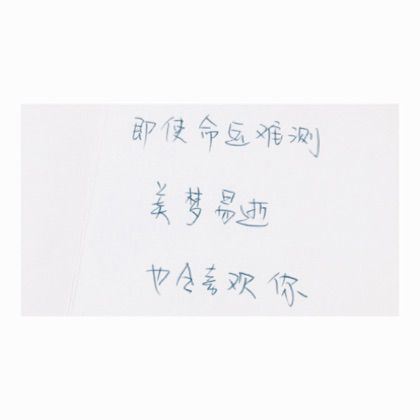 即使命运难测
美梦易逝
也会喜欢你